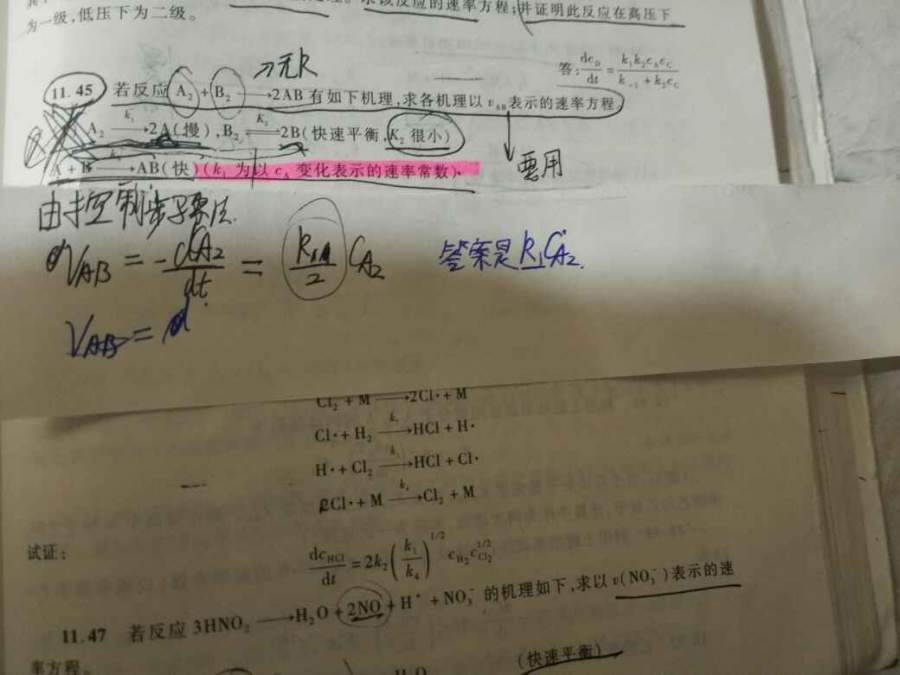 求该反应的速率方程;并证明此反应在高压下
为一级,低压下为二级。
答: dc_D/dt = k₁k₂c_Ac_C/(k₋₁ + k₂c_C)
→无k
11.45 若反应 A₂ + B₂ ⟶ 2AB 有如下机理,求各机理以 v_AB 表示的速率方程。
A₂ —k₁→ 2A(慢), B₂ ⇌K₂ 2B(快速平衡, K₂ 很小)
A + B ⟶ AB(快)(k₁ 为以 c_A 变化表示的速率常数)。
要用
由控制步骤法.
V_AB = -dCA₂/dt = k₁A/2 CA₂ 答案是k₁CA₂.
V_AB =
Cl₂ + M ⟶ 2Cl· + M
Cl· + H₂ ⟶ HCl + H·
H· + Cl₂ ⟶ HCl + Cl·
2Cl· + M —k₄→ Cl₂ + M
试证:
dc_HCl/dt = 2k₂(k₁/k₄)^1/2 c_H₂ c_Cl₂^1/2
11.47 若反应 3HNO₂ ⟶ H₂O + 2NO + H⁺ + NO₃⁻ 的机理如下,求以 v(NO₃⁻)表示的速
率方程。
(快速平衡)